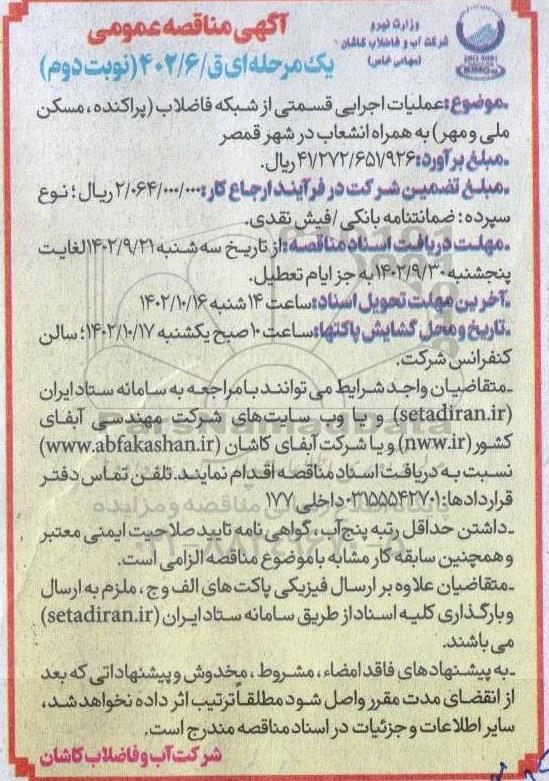 آگهی مناقصه عمومی
یک مرحله‌ای ق/۴۰۲/۶ (نوبت دوم)
وزارت نیرو
شرکت آب و فاضلاب کاشان
(سهامی خاص)
-موضوع: عملیات اجرایی قسمتی از شبکه فاضلاب (پراکنده، مسکن
ملی و مهر) به همراه انشعاب در شهر قمصر
-مبلغ برآورد: ۴۱/۲۷۲/۶۵۱/۹۲۶ ریال.
-مبلغ تضمین شرکت در فرآیند ارجاع کار: ۲/۰۶۴/۰۰۰/۰۰۰ ریال؛ نوع
سپرده: ضمانتنامه بانکی/فیش نقدی.
-مهلت دریافت اسناد مناقصه: از تاریخ سه شنبه ۱۴۰۲/۹/۲۱ لغایت
پنجشنبه ۱۴۰۲/۹/۳۰ به جز ایام تعطیل.
-آخرین مهلت تحویل اسناد: ساعت ۱۴ شنبه ۱۴۰۲/۱۰/۱۶
-تاریخ و محل گشایش پاکتها: ساعت ۱۰ صبح یکشنبه ۱۴۰۲/۱۰/۱۷؛ سالن
کنفرانس شرکت.
-متقاضیان واجد شرایط می توانند با مراجعه به سامانه ستاد ایران
(setadiran.ir) و یا وب سایت‌های شرکت مهندسی آبفای
کشور (nww.ir) و یا شرکت آبفای کاشان (www.abfakashan.ir)
نسبت به دریافت اسناد مناقصه اقدام نمایند. تلفن تماس دفتر
قراردادها: ۰۳۱۵۵۵۴۲۷۰۱ داخلی ۱۷۷
-داشتن حداقل رتبه پنج آب، گواهی نامه تایید صلاحیت ایمنی معتبر
و همچنین سابقه کار مشابه با موضوع مناقصه الزامی است.
-متقاضیان علاوه بر ارسال فیزیکی پاکت های الف و ج، ملزم به ارسال
و بارگذاری کلیه اسناد از طریق سامانه ستاد ایران (setadiran.ir)
می باشند.
-به پیشنهادهای فاقد امضاء، مشروط، مخدوش و پیشنهاداتی که بعد
از انقضای مدت مقرر واصل شود مطلقاً ترتیب اثر داده نخواهد شد،
سایر اطلاعات و جزئیات در اسناد مناقصه مندرج است.
شرکت آب و فاضلاب کاشان